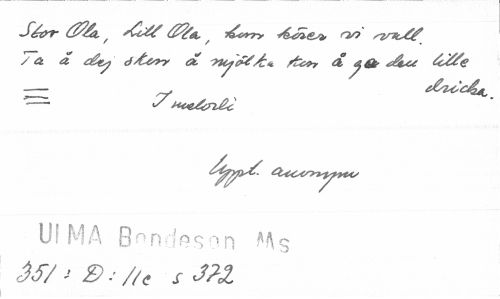 Stor Ola, Lill Ola, kom köser vi vall.
Ta å dej sken å mjölka kon å ge den lille
dricka.
I melodi
Uppt. anonym
ULMA Bondeson Ms
351: D: 11c s 372